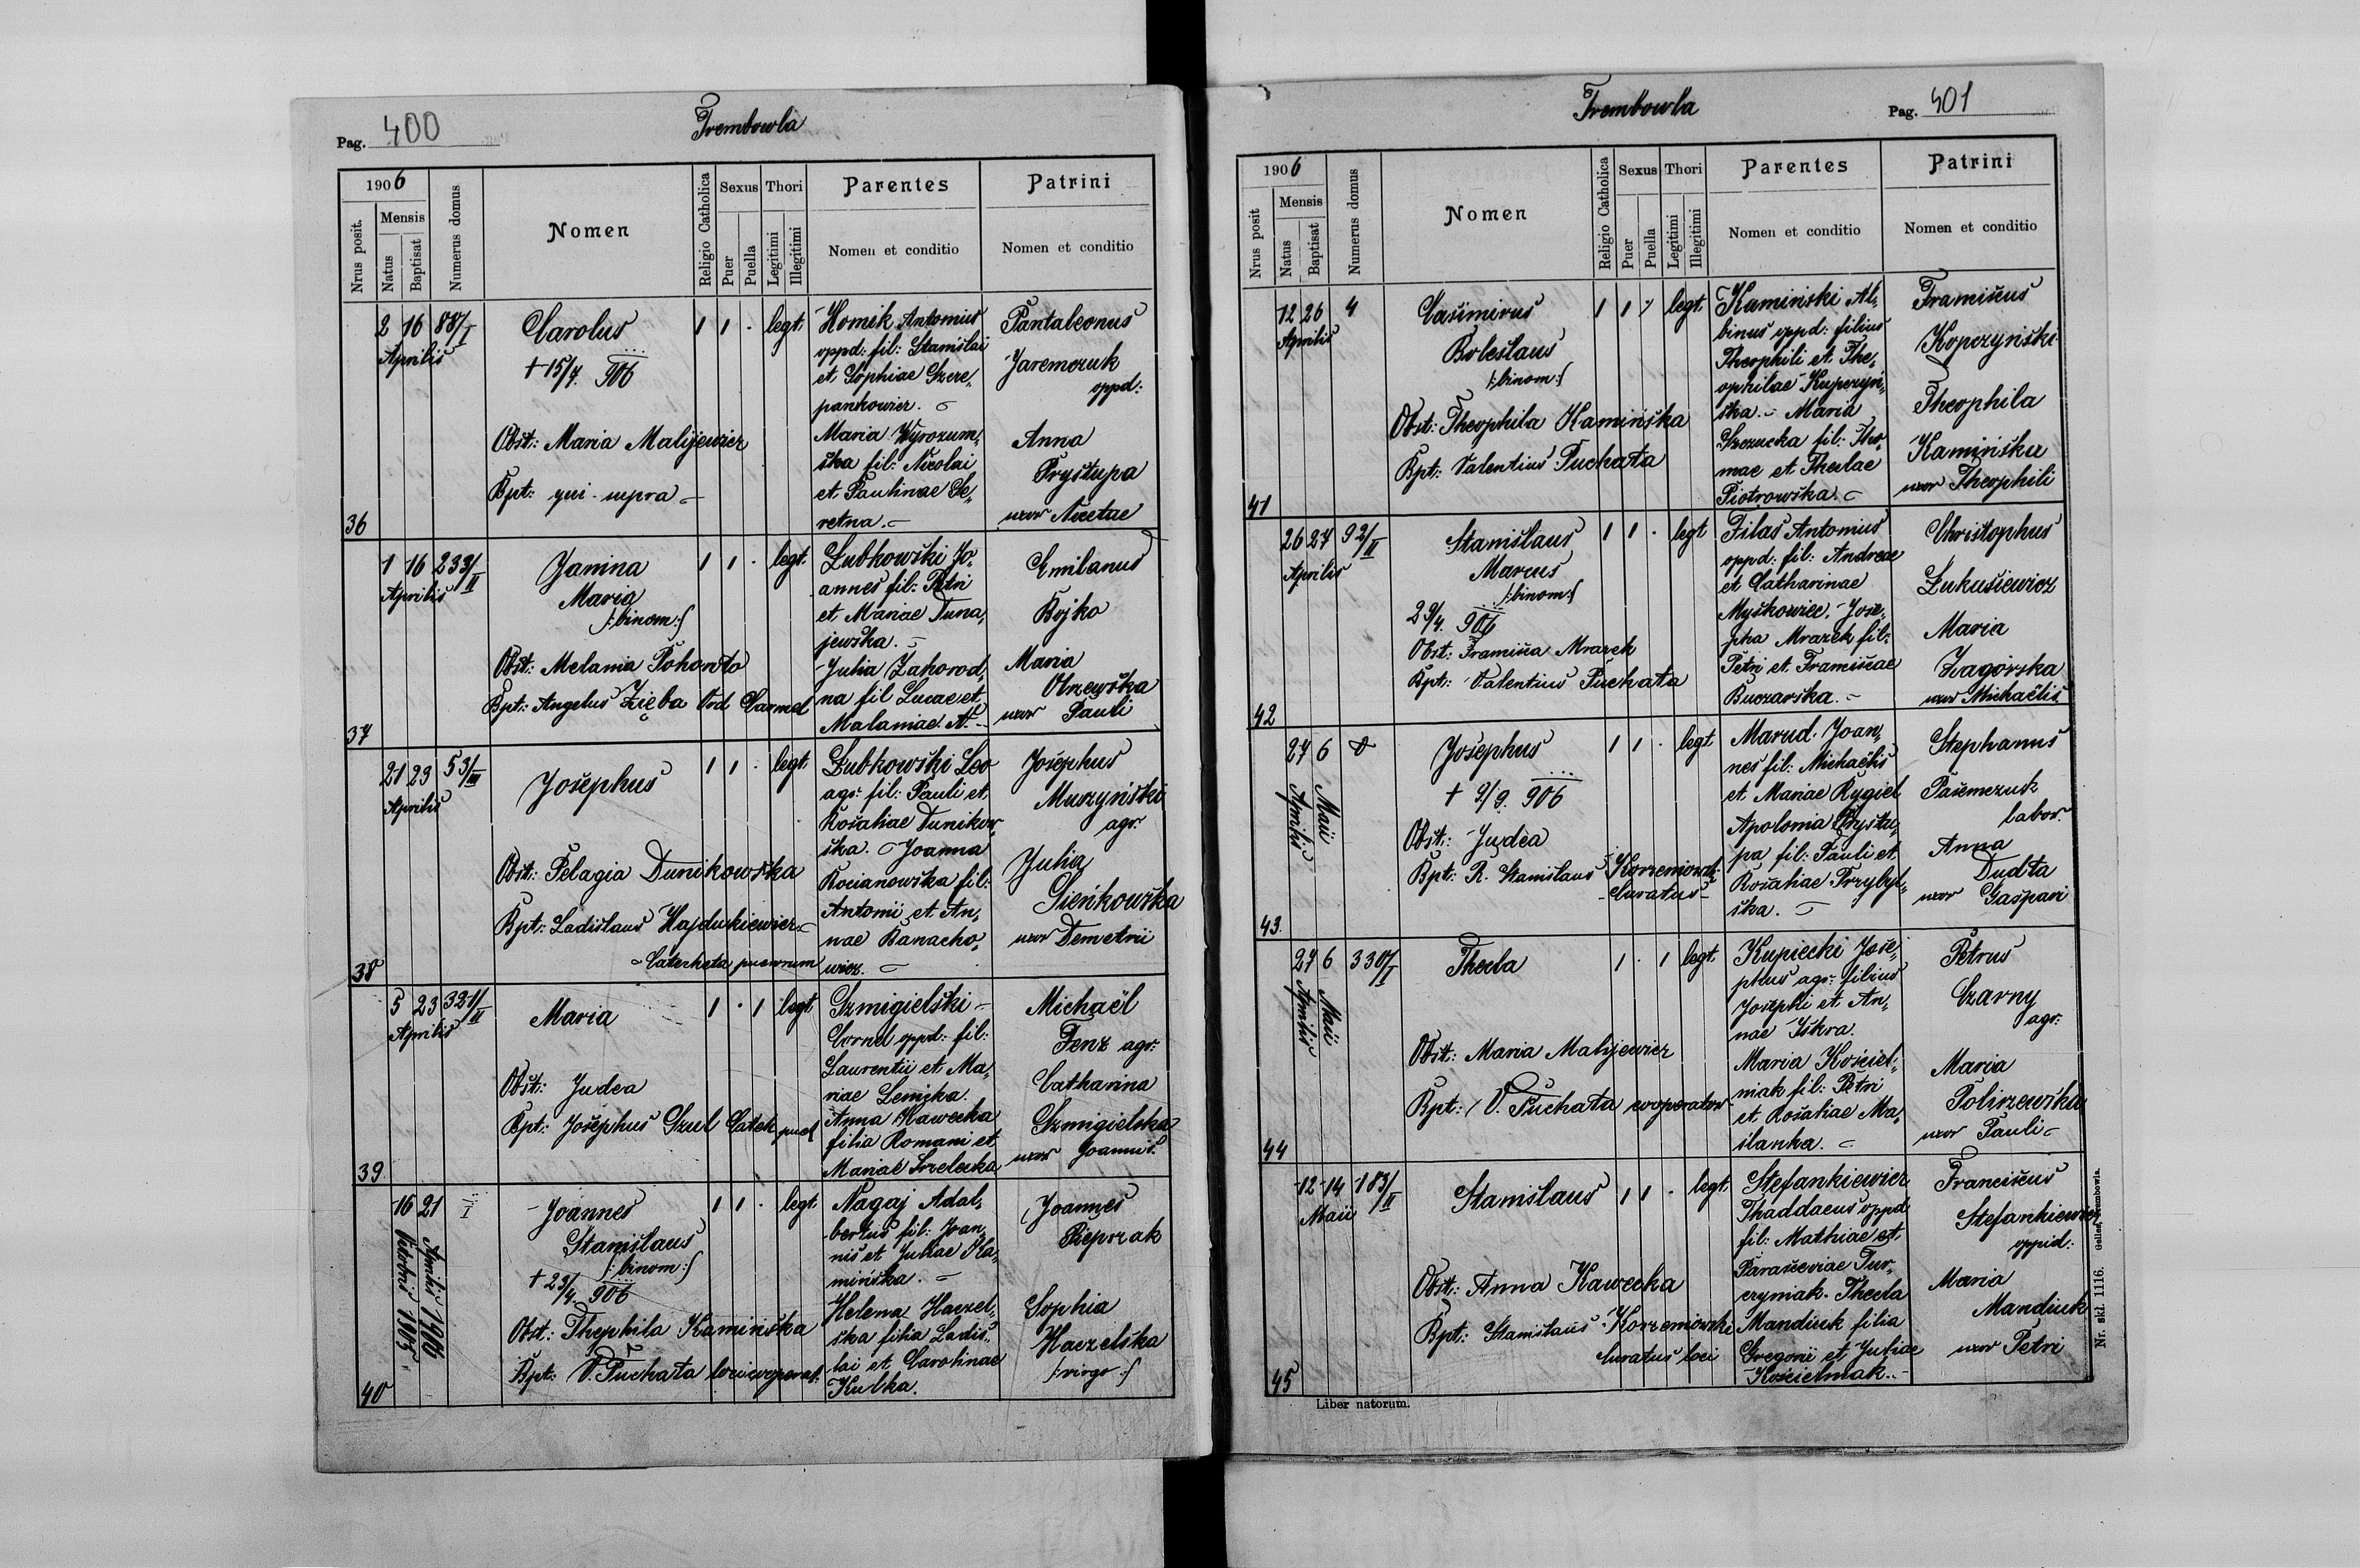 Pag. 400
Trembowla
1906
Nrus posit.
Mensis
Natus
Baptisat
Numerus domus
Nomen
Religio Catholica
Sexus
Puer
Puella
Thori
Legitimi
Illegitimi
Parentes
Nomen et conditio
Patrini
Nomen et conditio
36
2 16 88/I
Aprilis
Carolus
+ 15/4. 906
Obst: Maria Malijewicz
Bpt: qui supra
1 1 · legt.
Homik Antonius
oppd: fil: Stanislai
et Sophiae Szcze„
pankowicz.
Maria Wyrozum„
ska fil: Nicolai
et Paulinae Se„
retna.
Pantaleonus
Jaremczuk
oppd:
Anna
Prystupa
uxor Nicetae
37
1 16 233/II
Aprilis
Janina
Maria
/:binom:/
Obst: Melania Pohonto
Bpt: Angelus Zięba Ord Carmel
1 1 · legt.
Łubkowski Jo„
annes fil: Petri
et Mariae Duna„
jewska.
Julia Zahorod„
na fil Lucae et
Malaniae N.
Emilanus
Bojko
Maria
Olszewska
uxor Pauli
38
21 23 53/III
Aprilis
Josephus
Obst: Pelagia Dunikowska
Bpt: Ladislaus Hajdukiewicz
Catecheta puerorum
1 1 · legt.
Łubkowski Leo
agr: fil: Pauli et
Rosaliae Dunikow„
ska. Joanna
Kocianowska fil:
Antonii et An„
nae Banacho„
wicz.
Josephus
Muszyński
agr:
Julia
Sieńkowska
uxor Demetrii
39
5 23 321/II
Aprilis
Maria
Obst: Judea
Bpt: Josephus Szul Catech puel
1 · 1 legt.
Szmigielski
Cornel oppd: fil:
Laurentii et Ma„
riae Leniska.
Anna Hawecka
filia Romani et
Mariae Srzelecka
Michaël
Fenz agr:
Catharina
Szmigielska
uxor Joannis.
40
16 21 I
Octobris 1905.
Aprilis 1906
Joannes
Stanislaus
/:binom:/
+ 23/4. 906
Obst: Thephila Kamińska
Bpt: V. Puchata loci cooperat.
1 1 · legt.
Nagaj Adal„
bertus fil: Joan„
nis et Juliae Ka„
mińska.
Helena Haczel„
ska filia Ladis„
lai et Carolinae
Kulka.
Joannes
Pieprzak
Sophia
Haczelska
/:virgo:/
Trembowla
Pag. 401
1906
Nrus posit
Mensis
Natus
Baptisat
Numerus domus
Nomen
Religio Catholica
Sexus
Puer
Puella
Thori
Legitimi
Illegitimi
Parentes
Nomen et conditio
Patrini
Nomen et conditio
41
12 26 4
Aprilis
Casimirus
Boleslaus
/:binom:/
Obst: Theophila Kamińska
Bpt: Valentius Puchata
1 1 · legt.
Kamiński Al„
binus oppd: filius
Theophili et The„
ophilae Kupczyń„
ska. Maria
Szczucka fil: Tho„
mae et Theclae
Piotrowska.
Franciscus
Kopczyński
Theophila
Kamińska
uxor Theophili
42
26 27 92/II
Aprilis
Stanislaus
Marcus
/:binom:/
29/4. 906
Obst: Francisca Mrazek
Bpt: Valentius Puchata
1 1 · legt
Filas Antonius
oppd: fil: Andreae
et Catharinae
Myskowiec. Jose„
pha Mrazek fil:
Petri et Franciscae
Buczarska.
Christophus
Łukasiewicz
Maria
Zagórska
uxor Michaëlis
43.
27 6
Aprilis
Maii
Josephus
+ 2/9. 906
Obst: Judea
Bpt: R. Stanislaus Korzeniowski
Curatus
1 1 · legt
Marud Joan„
nes fil: Michaëlis
et Mariae Rygiel
Apolonia Prystu„
pa fil: Pauli et
Rosaliae Przybyl„
ska.
Stephanus
Pasemczuk
labor.
Anna
Dudta
uxor Gaspari
44
27 6 330/I
Aprilis
Maii
Thecla
Obst: Maria Malijewicz
Bpt: V. Puchata cooperator
1 · 1 legt.
Kupiecki Jose„
phus agr: filius
Josephi et An„
nae Iskra.
Maria Kościel„
niak fil: Petri
et Rosaliae Ma„
slanka.
Petrus
Czarny
agr:
Maria
Poliszewska
uxor Pauli
45
12 14 183/II
Maii
Stanislaus
Obst: Anna Kawecka
Bpt: Stanislaus Korzeniowski
Curatus loci
1 1 · legt.
Stefankiewicz
Thaddaeus oppd
fil: Mathiae et
Parasceviae Tur„
czyniak. Thecla
Mandiuk filia
Gregorii et Juliae
Kościelniak.
Franciscus
Stefankiewicz
oppid:
Maria
Mandiuk
uxor Petri
Liber natorum.
Nr. skł. 1116. Gelles, Trembowla.